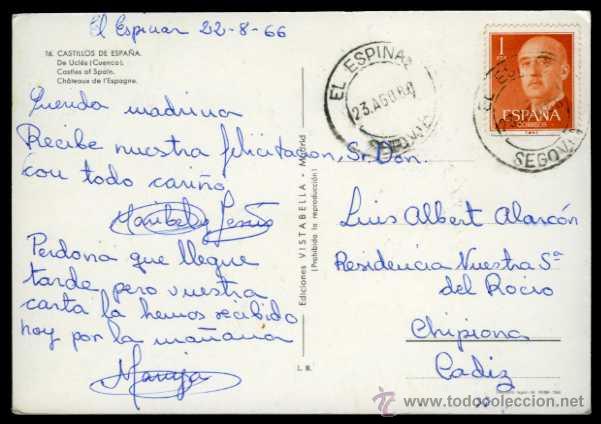 El Espinar 22-8-66
16. CASTILLOS DE ESPAÑA.
De Uclés (Cuenca).
Castles of Spain.
Châteaux de l'Espagne.
Querida madrina
Recibe nuestra felicitacion,
con todo cariño
Maribel y Jesús
Perdona que llegue
tarde pero vuestra
carta la hemos recibido
hoy por la mañana
Maruja
Ediciones VISTABELLA - Madrid
(Prohibida la reproducción)
L. B.
EL ESPINAR
23.AGO
SEGOVIA
1
ESPAÑA
CORREOS
EL ESPINAR
SEGOVIA
Sr. Don.
Luis Albert Alarcón
Residencia Nuestra Sª
del Rocio
Chipiona
Cadiz
todocoleccion.net